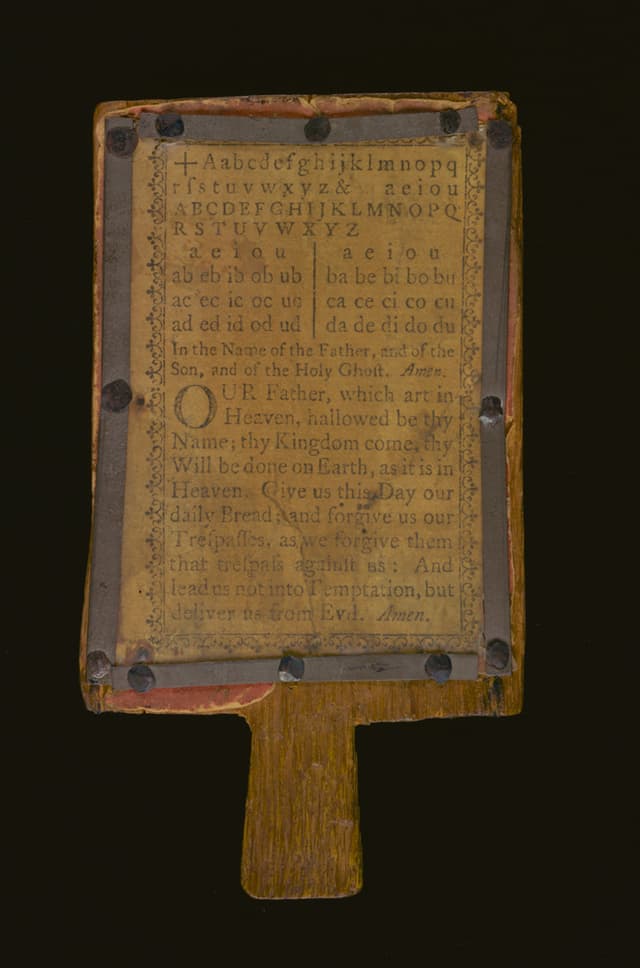 +Aabcdefghijklmnopq
rſstuvwxyz& aeiou
ABCDEFGHIJKLMNOPQ
RSTUVWXYZ
a e i o u | a e i o u
ab eb ib ob ub | ba be bi bo bu
ac ec ic oc uc | ca ce ci co cu
ad ed id od ud | da de di do du
In the Name of the Father, and of the
Son, and of the Holy Ghoſt. Amen.
OUR Father, which art in
Heaven, hallowed be thy
Name; thy Kingdom come, thy
Will be done on Earth, as it is in
Heaven. Give us this Day our
daily Bread; and forgive us our
Treſpaſſes, as we forgive them
that treſpaſs againſt us: And
lead us not into Temptation, but
deliver us from Evil. Amen.